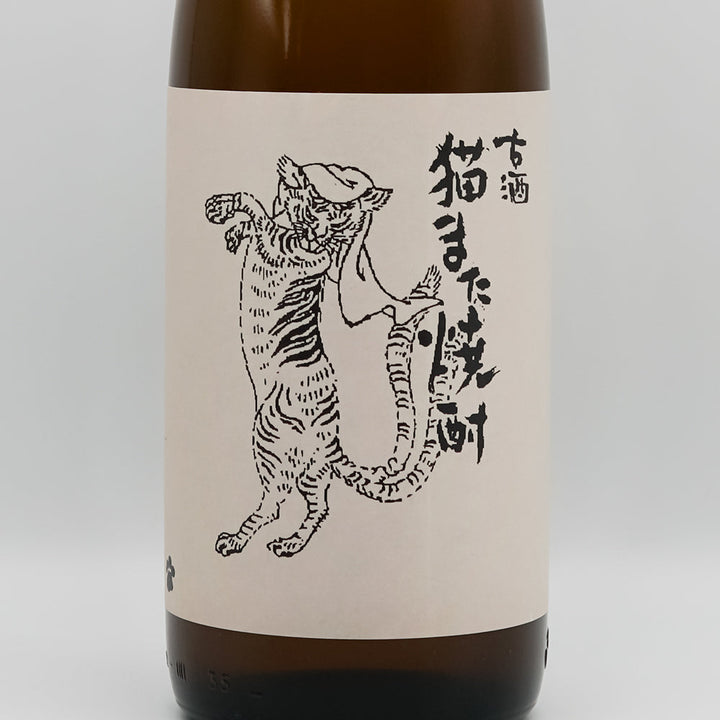 古酒
猫また焼酎
35